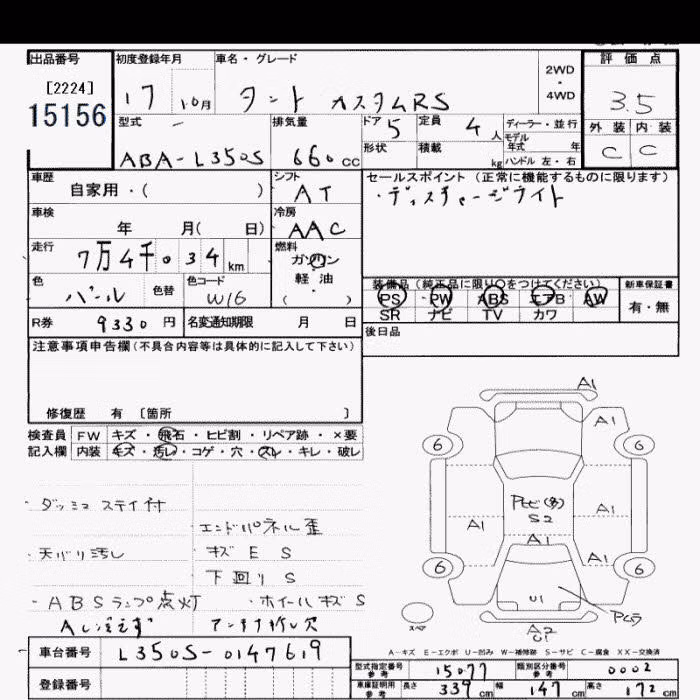 出品番号 初度登録年月 車名・グレード 2WD・4WD 評価点
[2224]
15156
17 10月 タント カスタムRS 3.5
型式 排気量 ドア 5 定員 4人 ディーラー・並行 外装 内装
モデル年式 年
ABA-L350S 660cc 形状 積載 kg ハンドル 左・右 C C
車歴 シフト セールスポイント(正常に機能するものに限ります)
自家用・( ) AT ・ディスチャージライト
車検 冷房
年 月( 日) AAC
走行 燃料
7万4千034km ガソリン
軽油
( )
色 色替 色コード 装備品(純正品に限り○をつけてください) 新車保証書
パール W16 PS PW ABS エアB AW 有・無
SR ナビ TV カワ
R券 9330円 名変通知期限 月 日 後日品
注意事項申告欄(不具合内容等は具体的に記入して下さい)
修復歴 有 〔箇所 〕
検査員 FW キズ・飛石・ヒビ割・リペア跡・×要
記入欄 内装 キズ・汚レ・コゲ・穴・スレ・キレ・破レ
・ダッシュ ステイ付
エンドパネル歪
・天バリ汚レ キズ E S
下回り S
・ABSランプ点灯 ・ホイールキズ S
アンテナ折レ欠
A1
A1
6 6
S2
A1 A1
A1
A1
6 6
U1
スペア
A-キズ E-エクボ U-凹み W-補修跡 S-サビ C-腐食 XX-交換済
車台番号 L350S-0147619
登録番号
型式指定番号 参考 15077 類別区分番号 参考 0002
車庫証明用 参考 長さ 339cm 幅 147cm 高さ 172cm